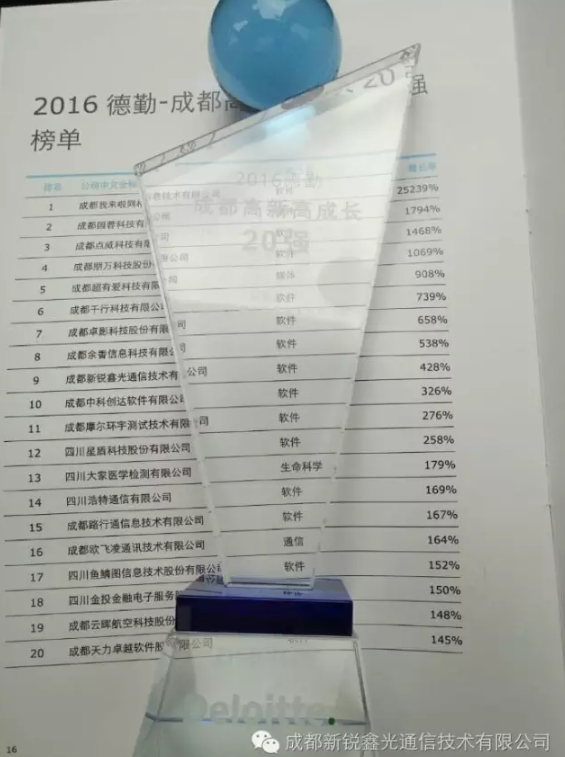 2016 德勤-成都高 20 强
榜单
排名 公司中文全称 增长率
1 成都我来啦网 信息技术有限公司 软件 25239%
2 成都园蓉科技有 公司 1794%
3 成都点威科技有限 1468%
4 成都朋万科技股份 1069%
5 成都超有爱科技有 媒体 908%
6 成都千行科技有限公司 软件 739%
7 成都卓影科技股份有限 司 软件 658%
8 成都余香信息科技有限公 软件 538%
9 成都新锐鑫光通信技术有 公司 软件 428%
10 成都中科创达软件有限公 软件 326%
11 成都摩尔环宇测试技术有限 软件 276%
12 四川星盾科技股份有限公司 软件 258%
13 四川大家医学检测有限公司 生命科学 179%
14 四川浩特通信有限公司 软件 169%
15 成都路行通信息技术有限公司 软件 167%
16 成都欧飞凌通讯技术有限公司 通信 164%
17 四川鱼鳞图信息技术股份有限公司 软件 152%
18 四川金投金融电子服务 150%
19 成都云晖航空科技股份 148%
20 成都天力卓越软件股 有限公司 145%
2016德勤
成都高新高成长
20强
Deloitte.
16
成都新锐鑫光通信技术有限公司